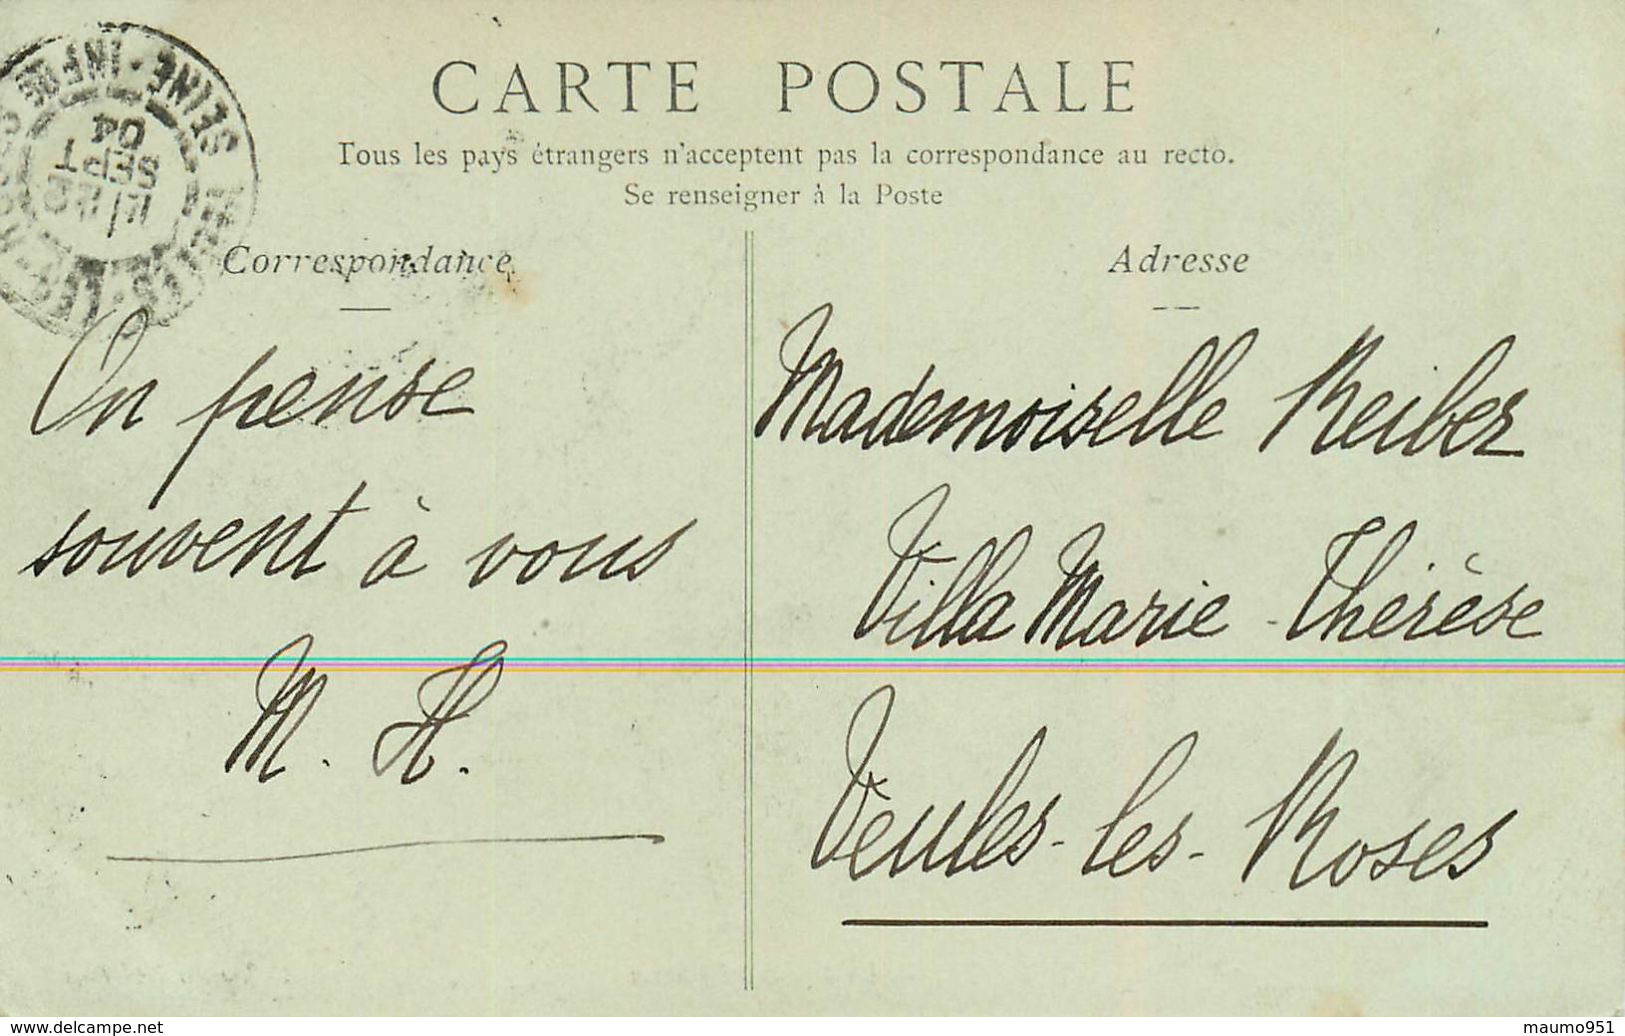 CARTE POSTALE
Tous les pays étrangers n'acceptent pas la correspondance au recto.
Se renseigner à la Poste
Correspondance
On pense
souvent à vous
M. H.
Adresse
Mademoiselle Reiber
Villa Marie-Thérèse
Veules-les-Roses
SEINE-INFRE
SEPT
04
www.delcampe.net
maumo951